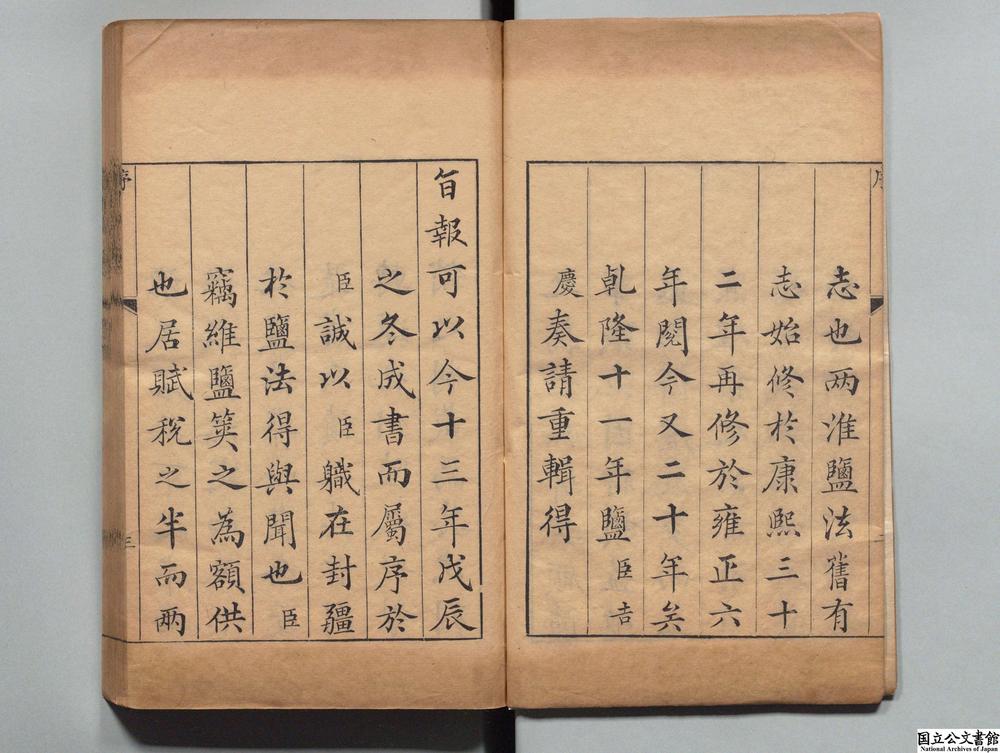 志也两淮鹽法舊有
志始修於康熙三十
二年再修於雍正六
年閲今又二十年矣
乹隆十一年鹽臣吉
慶奏請重輯得
旨報可以今十三年戊辰
之冬成書而屬序於
臣誠以臣職在封疆
於鹽法得與聞也臣
竊維鹽筴之為額供
也居賦稅之半而两
序
三
国立公文書館
National Archives of Japan